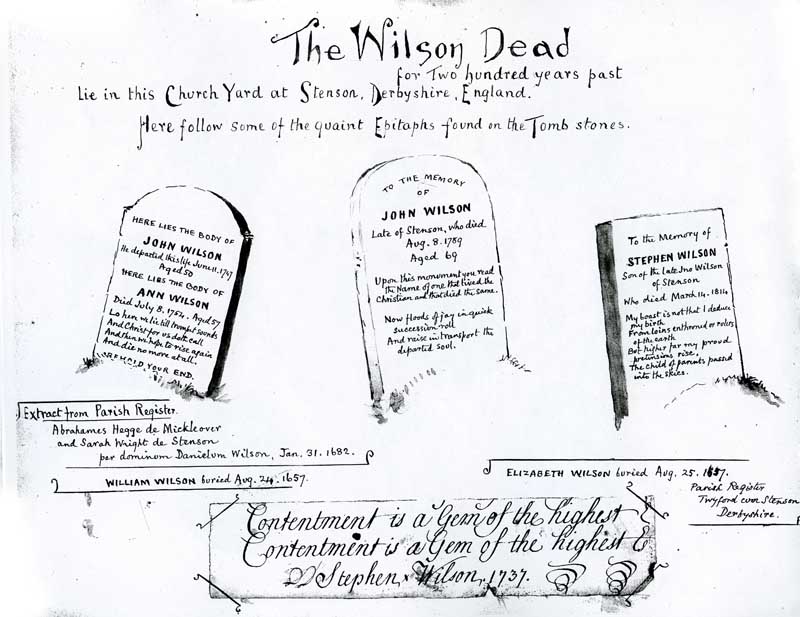 The Wilson Dead
for Two hundred years past
Lie in this Church Yard at Stenson, Derbyshire, England.
Here follow some of the quaint Epitaphs found on the Tomb stones.
HERE LIES THE BODY OF
JOHN WILSON
He departed this life June 11, 1747
Aged 50
HERE LIES THE BODY OF
ANN WILSON
Died July 8. 1754. Aged 57
Lo here we lie till trumpet sounds
And Christ for us doth call
And then we hope to rise again
And die no more at all.
BEHOLD YOUR END.
TO THE MEMORY
OF
JOHN WILSON
Late of Stenson, who died
Aug. 8. 1789
Aged 69
Upon this monument you read
the Name of one that lived the
Christian and that died the same.
Now floods of joy in quick
succession roll
And raise in transport the
departed soul.
To the Memory of
STEPHEN WILSON
Son of the late Jno Wilson
of Stenson
Who died March 14. 1814
My boast is not that I deduce
my birth
From loins enthroned or rulers
of the earth
But higher far my proud
pretensions rise,
The child of parents passed
into the skies.
Extract from Parish Register.
Abrahames Hegge de Mickleover
and Sarah Wright de Stenson
per dominum Danielum Wilson, Jan. 31. 1682.
WILLIAM WILSON buried Aug. 24. 1657.
ELIZABETH WILSON buried Aug. 25. 1657.
Parish Register
Twyford cum Stenson
Derbyshire.
Contentment is a Gem of the highest
Contentment is a Gem of the highest &
Stephen Wilson, 1737.